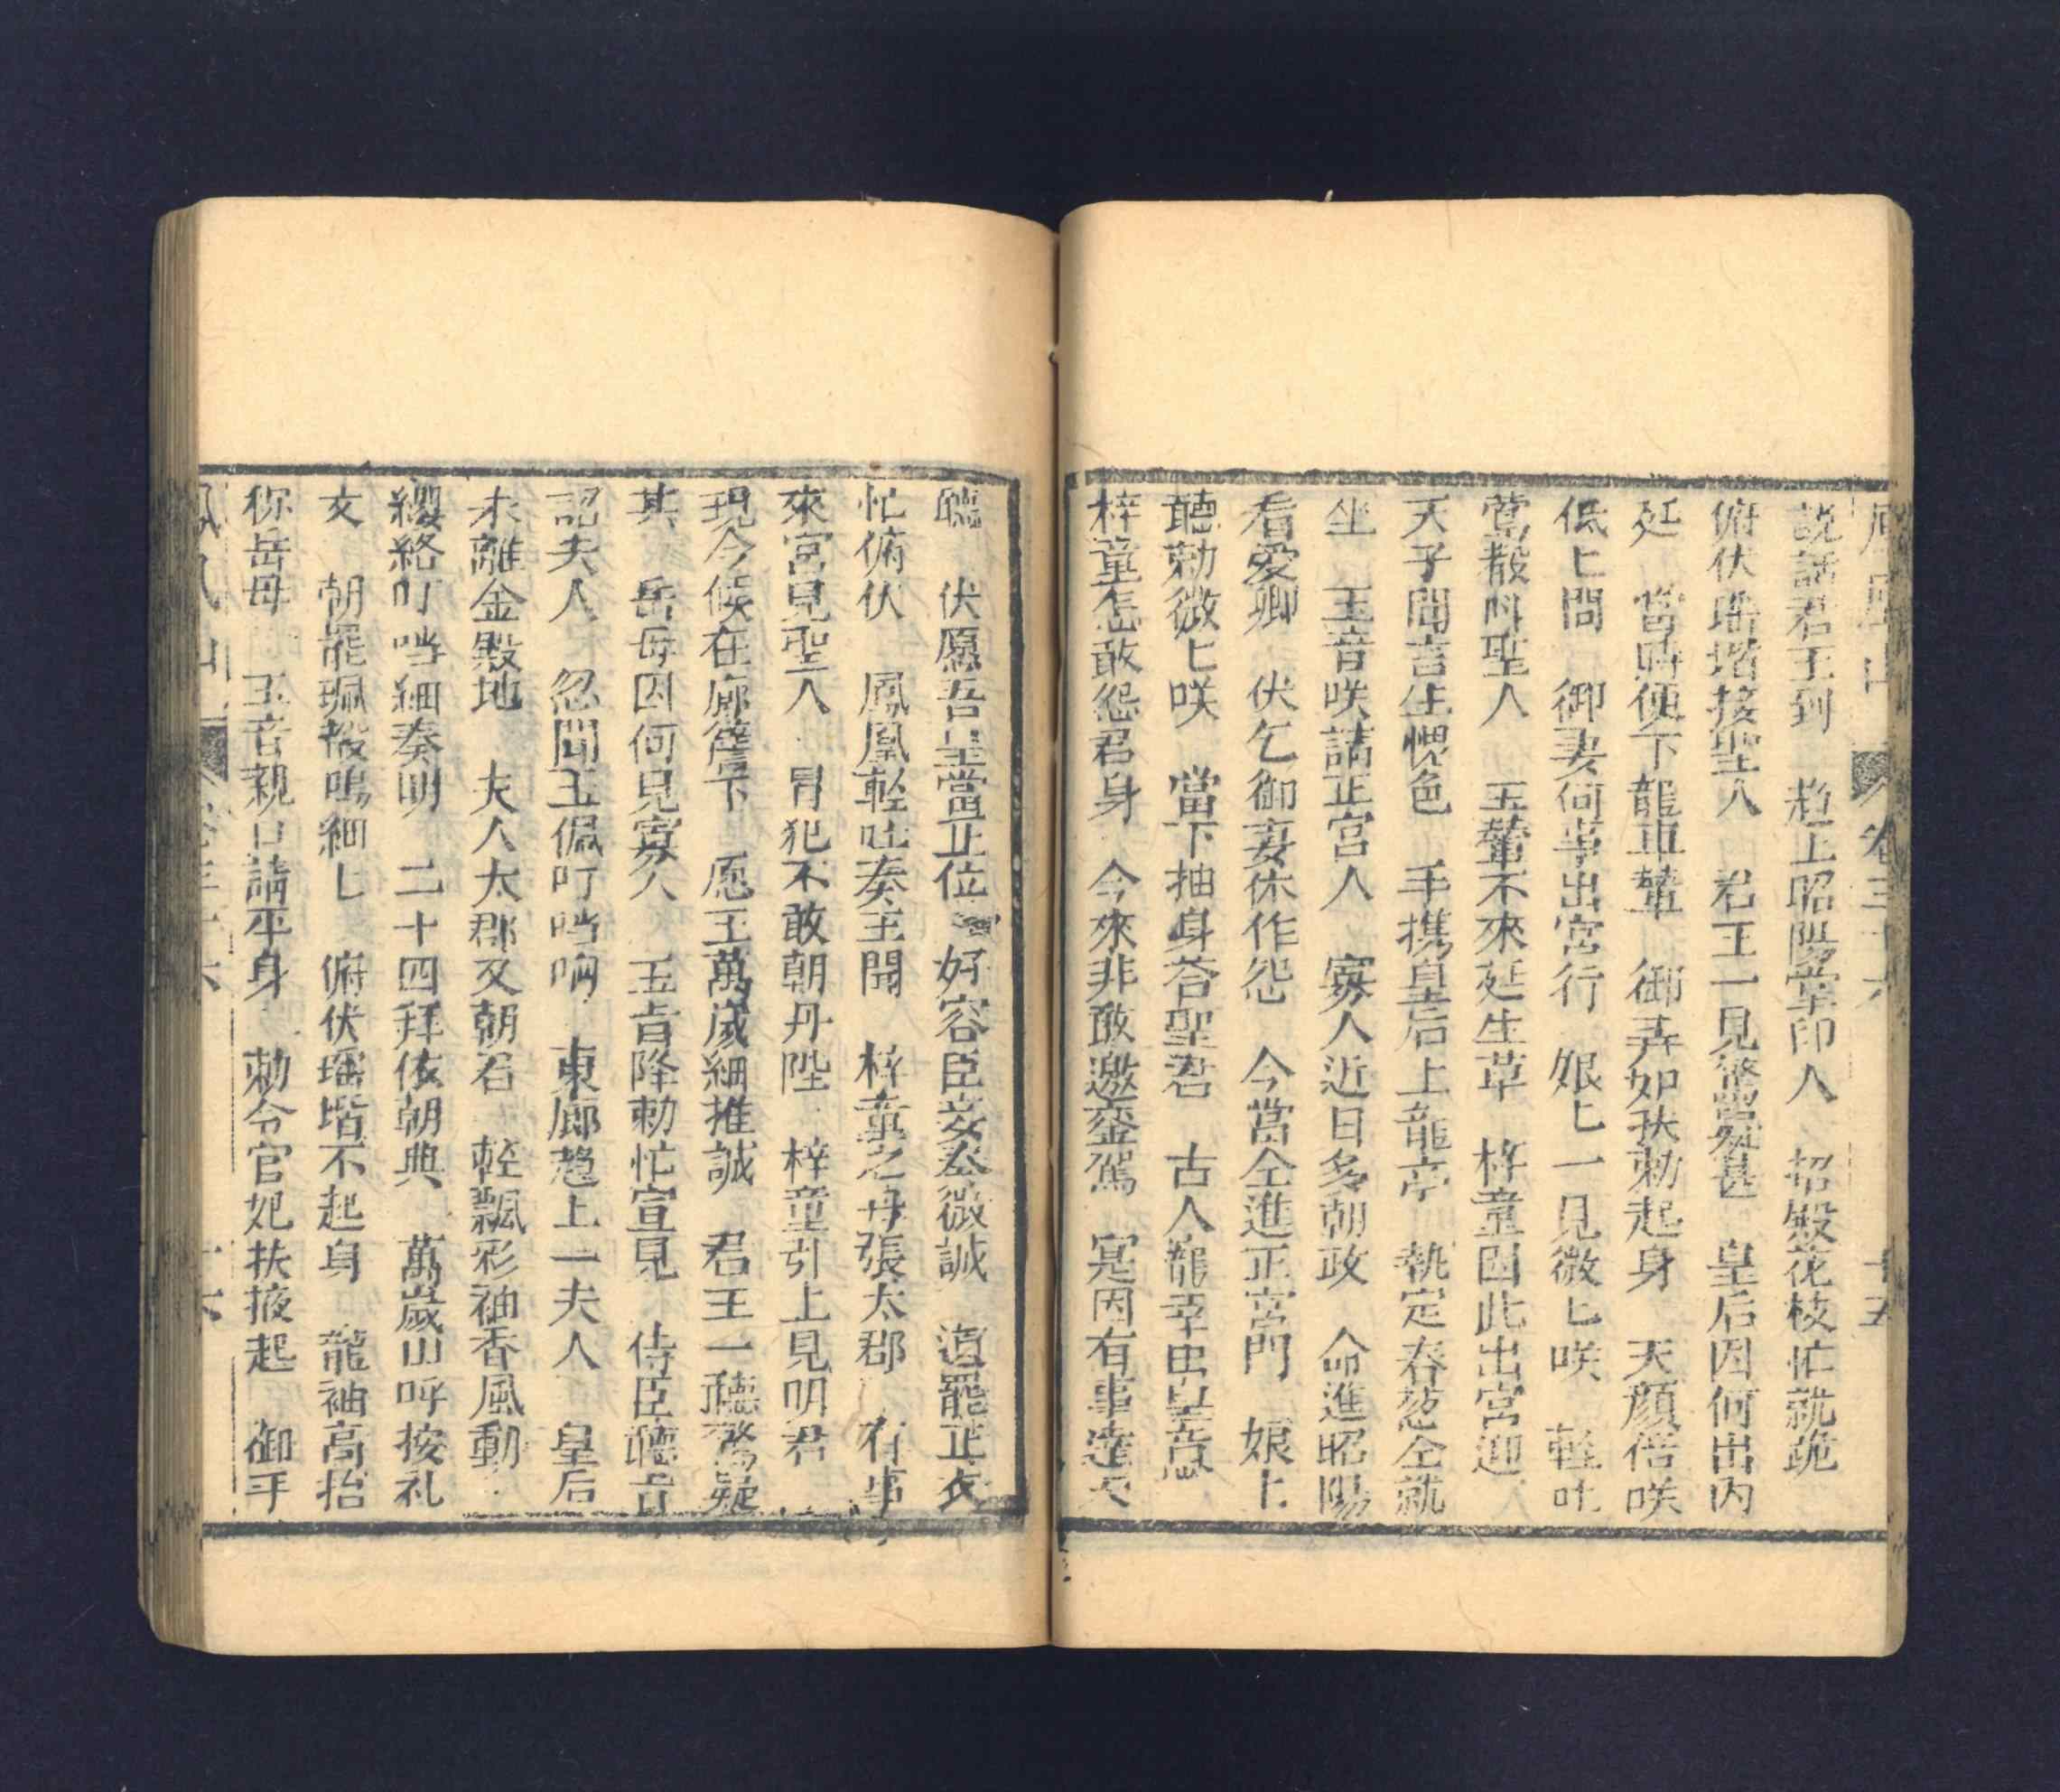 卷三十六 十五
說話君王到 趋上昭陽掌印人 招㲀花枝忙就跪
俯伏瑶堦接聖人 君王一見驚疑甚 皇后因何出內
延 當時便下龍車輦 御弄如扶勅起身 天顏倍咲
低匕問 御妻何事出宮行 娘匕一見微匕咲 輕吐
鶯聲呌聖人 玉輦不來延生草 梓童因此出宮迎
天子聞言生愧色 手携皇后上龍亭 執定春葱仝就
坐 玉音咲請正宮人 寡人近日多朝政 命進昭陽
看愛卿 伏乞御妻休作怨 今當仝進正宮門 娘上
聽勅微匕咲 當下抽身荅聖君 古人寵幸由皇意
梓童怎敢怨君身 今來非敢邀鑾駕 寔因有事達天
聽 伏愿吾皇當正位 好容臣妾奏微誠 道罷正衣
忙俯伏 鳳凰輕吐奏主聞 梓童之母張太郡 有事
來宮見聖人 冒犯不敢朝丹陛 梓童引上見明君
現今候在廊簷下 愿王萬歲細推誠 君王一聽驚疑
其 岳母因何見寡人 玉旨降勅忙宣見 侍臣聽旨
詔夫人 忽聞玉佩叮噹响 東廊趋上一夫人 皇后
未離金殿地 夫人太郡又朝君 輕飄彩袖香風動
纓絡叮噹細奏明 二十四拜依朝典 萬歲山呼按礼
文 朝罷珮聲鳴細匕 俯伏瑶堦不起身 龍袖高抬
称岳母 玉音親口請平身 勅令官妃扶掖起 御手
鳳凰山 卷三十六 十六